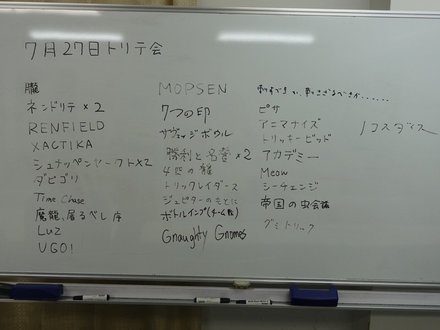 7月27日トリテ会
朧
ネンドリテ×2
RENFIELD
XACTIKA
シュナッペンヤークト×2
ダビゴリ
Time Chase
魔龍、屠るべし 序
Luz
UGO!
MOPSEN
7つの印
サヴェッジボウル
勝利と名誉×2
4匹の
トリックレイダース
ジュピターのもとに
ボトルインプ(チーム戦)
Gnaughty Gnomes
刺すべきか、刺さざるべきか......
ピサ
アニマナイズ
トリッキービッド
アカデミー
Meow
シーチェンジ
帝国の虫会議
グミトリック
ノコスダイス